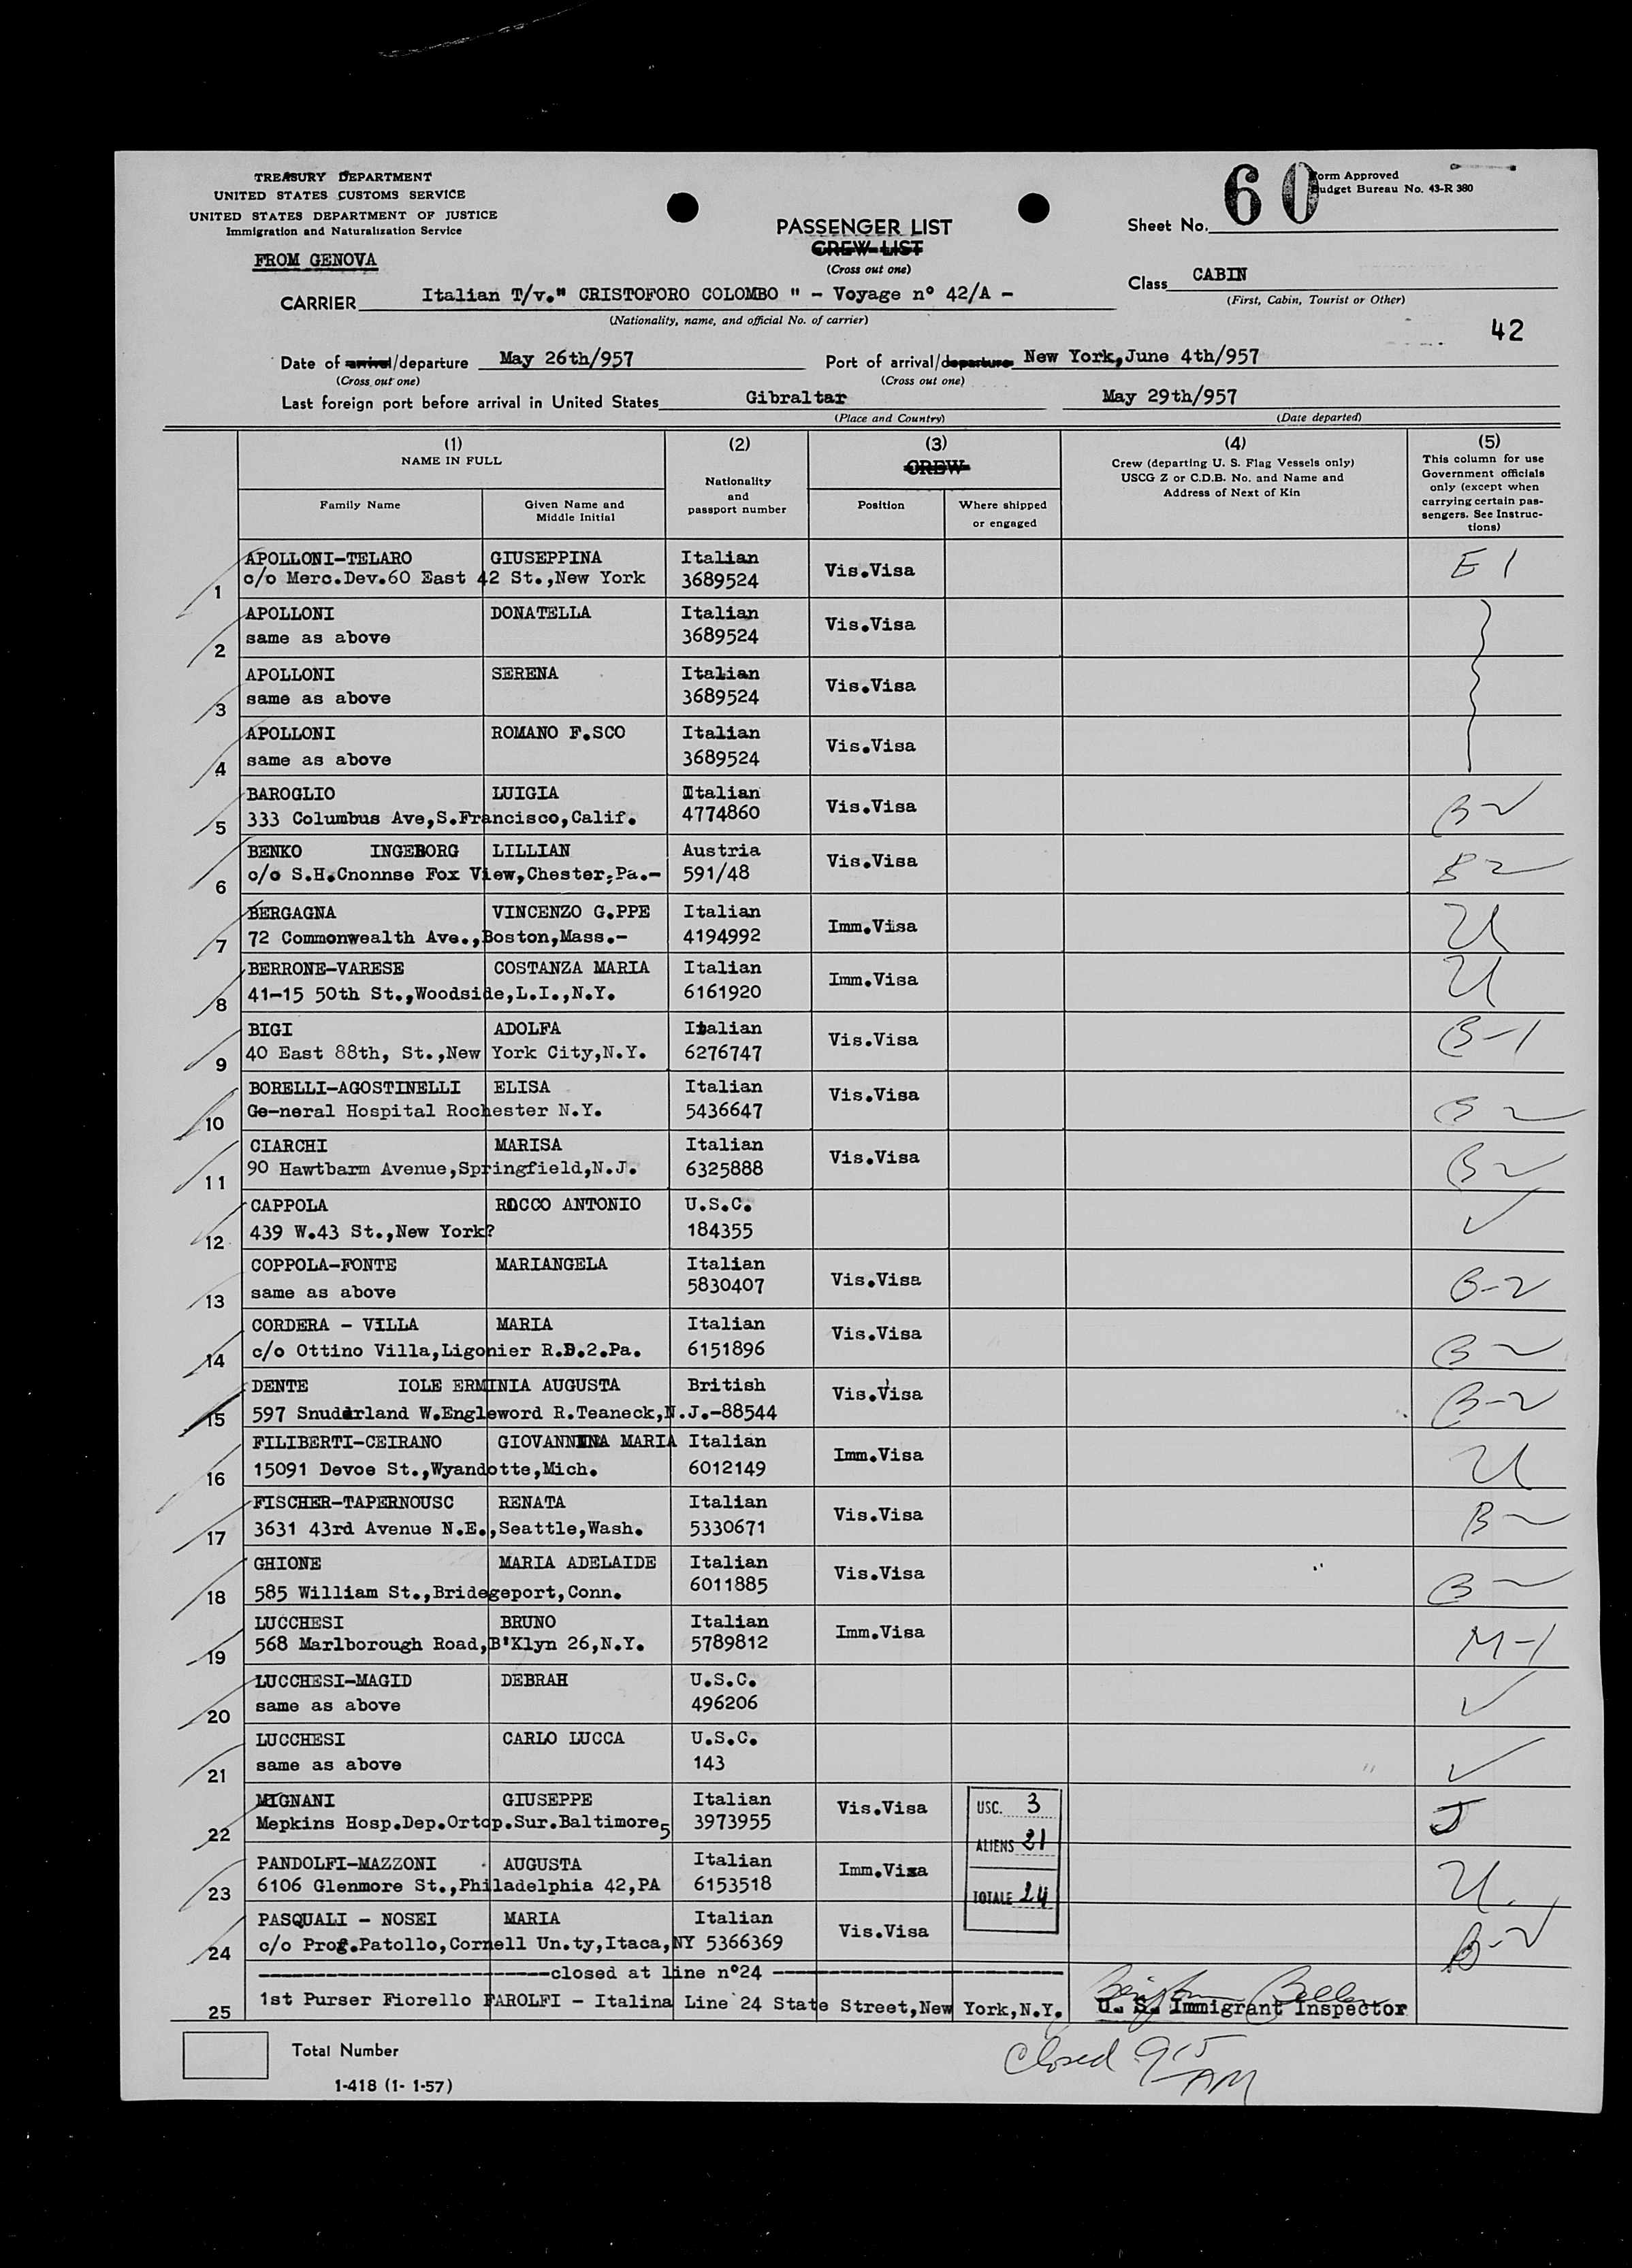 TREASURY DEPARTMENT
UNITED STATES CUSTOMS SERVICE
UNITED STATES DEPARTMENT OF JUSTICE
Immigration and Naturalization Service
FROM GENOVA
PASSENGER LIST
CREW LIST
(Cross out one)
60
Form Approved
Budget Bureau No. 43-R 380
Sheet No.
Class CABIN
(First, Cabin, Tourist or Other)
CARRIER Italian T/v." CRISTOFORO COLOMBO " - Voyage n° 42/A -
(Nationality, name, and official No. of carrier)
42
Date of arrival/departure May 26th/957 Port of arrival/departure New York,June 4th/957
(Cross out one) (Cross out one)
Last foreign port before arrival in United States Gibraltar May 29th/957
(Place and Country) (Date departed)
(1) (2) (3) (4) (5)
NAME IN FULL
Family Name
Given Name and
Middle Initial
Nationality
and
passport number
CREW
Position
Where shipped
or engaged
Crew (departing U. S. Flag Vessels only)
USCG Z or C.D.B. No. and Name and
Address of Next of Kin
This column for use
Government officials
only (except when
carrying certain pas-
sengers. See Instruc-
tions)
1 APOLLONI-TELARO GIUSEPPINA Italian Vis.Visa E 1
c/o Merc.Dev.60 East 42 St.,New York 3689524
2 APOLLONI DONATELLA Italian Vis.Visa
same as above 3689524
3 APOLLONI SERENA Italian Vis.Visa
same as above 3689524
4 APOLLONI ROMANO F.SCO Italian Vis.Visa
same as above 3689524
5 BAROGLIO LUIGIA Italian Vis.Visa B2
333 Columbus Ave,S.Francisco,Calif. 4774860
6 BENKO INGEBORG LILLIAN Austria Vis.Visa B2
c/o S.H.Cnonnse Fox View,Chester,Pa.- 591/48
7 BERGAGNA VINCENZO G.PPE Italian Imm.Visa
72 Commonwealth Ave.,Boston,Mass.- 4194992
8 BERRONE-VARESE COSTANZA MARIA Italian Imm.Visa
41-15 50th St.,Woodside,L.I.,N.Y. 6161920
9 BIGI ADOLFA Italian Vis.Visa B-1
40 East 88th, St.,New York City,N.Y. 6276747
10 BORELLI-AGOSTINELLI ELISA Italian Vis.Visa B2
Ge-neral Hospital Rochester N.Y. 5436647
11 CIARCHI MARISA Italian Vis.Visa B2
90 Hawtbarm Avenue,Springfield,N.J. 6325888
12 CAPPOLA ROCCO ANTONIO U.S.C. ✓
439 W.43 St.,New York? 184355
13 COPPOLA-FONTE MARIANGELA Italian Vis.Visa B-2
same as above 5830407
14 CORDERA - VILLA MARIA Italian Vis.Visa B2
c/o Ottino Villa,Ligonier R.D.2.Pa. 6151896
15 DENTE IOLE ERMINIA AUGUSTA British Vis.Visa B-2
597 Snudarland W.Engleword R.Teaneck,N.J.-88544
16 FILIBERTI-CEIRANO GIOVANNINA MARIA Italian Imm.Visa
15091 Devoe St.,Wyandotte,Mich. 6012149
17 FISCHER-TAPERNOUSC RENATA Italian Vis.Visa B2
3631 43rd Avenue N.E.,Seattle,Wash. 5330671
18 GHIONE MARIA ADELAIDE Italian Vis.Visa B2
585 William St.,Bridegeport,Conn. 6011885
19 LUCCHESI BRUNO Italian Imm.Visa M-1
568 Marlborough Road,B'Klyn 26,N.Y. 5789812
20 LUCCHESI-MAGID DEBRAH U.S.C. ✓
same as above 496206
21 LUCCHESI CARLO LUCCA U.S.C. ✓
same as above 143
22 MIGNANI GIUSEPPE Italian Vis.Visa J
Mepkins Hosp.Dep.Ortop.Sur.Baltimore5 3973955
USC. 3
ALIENS 21
TOTALE 24
23 PANDOLFI-MAZZONI AUGUSTA Italian Imm.Visa
6106 Glenmore St.,Philadelphia 42,PA 6153518
24 PASQUALI - NOSEI MARIA Italian Vis.Visa B-2
c/o Prof.Patollo,Cornell Un.ty,Itaca,NY 5366369
closed at line n°24
25 1st Purser Fiorello FAROLFI - Italina Line 24 State Street,New York,N.Y. U. S. Immigrant Inspector
Total Number
Closed 915
AM
I-418 (1- 1-57)